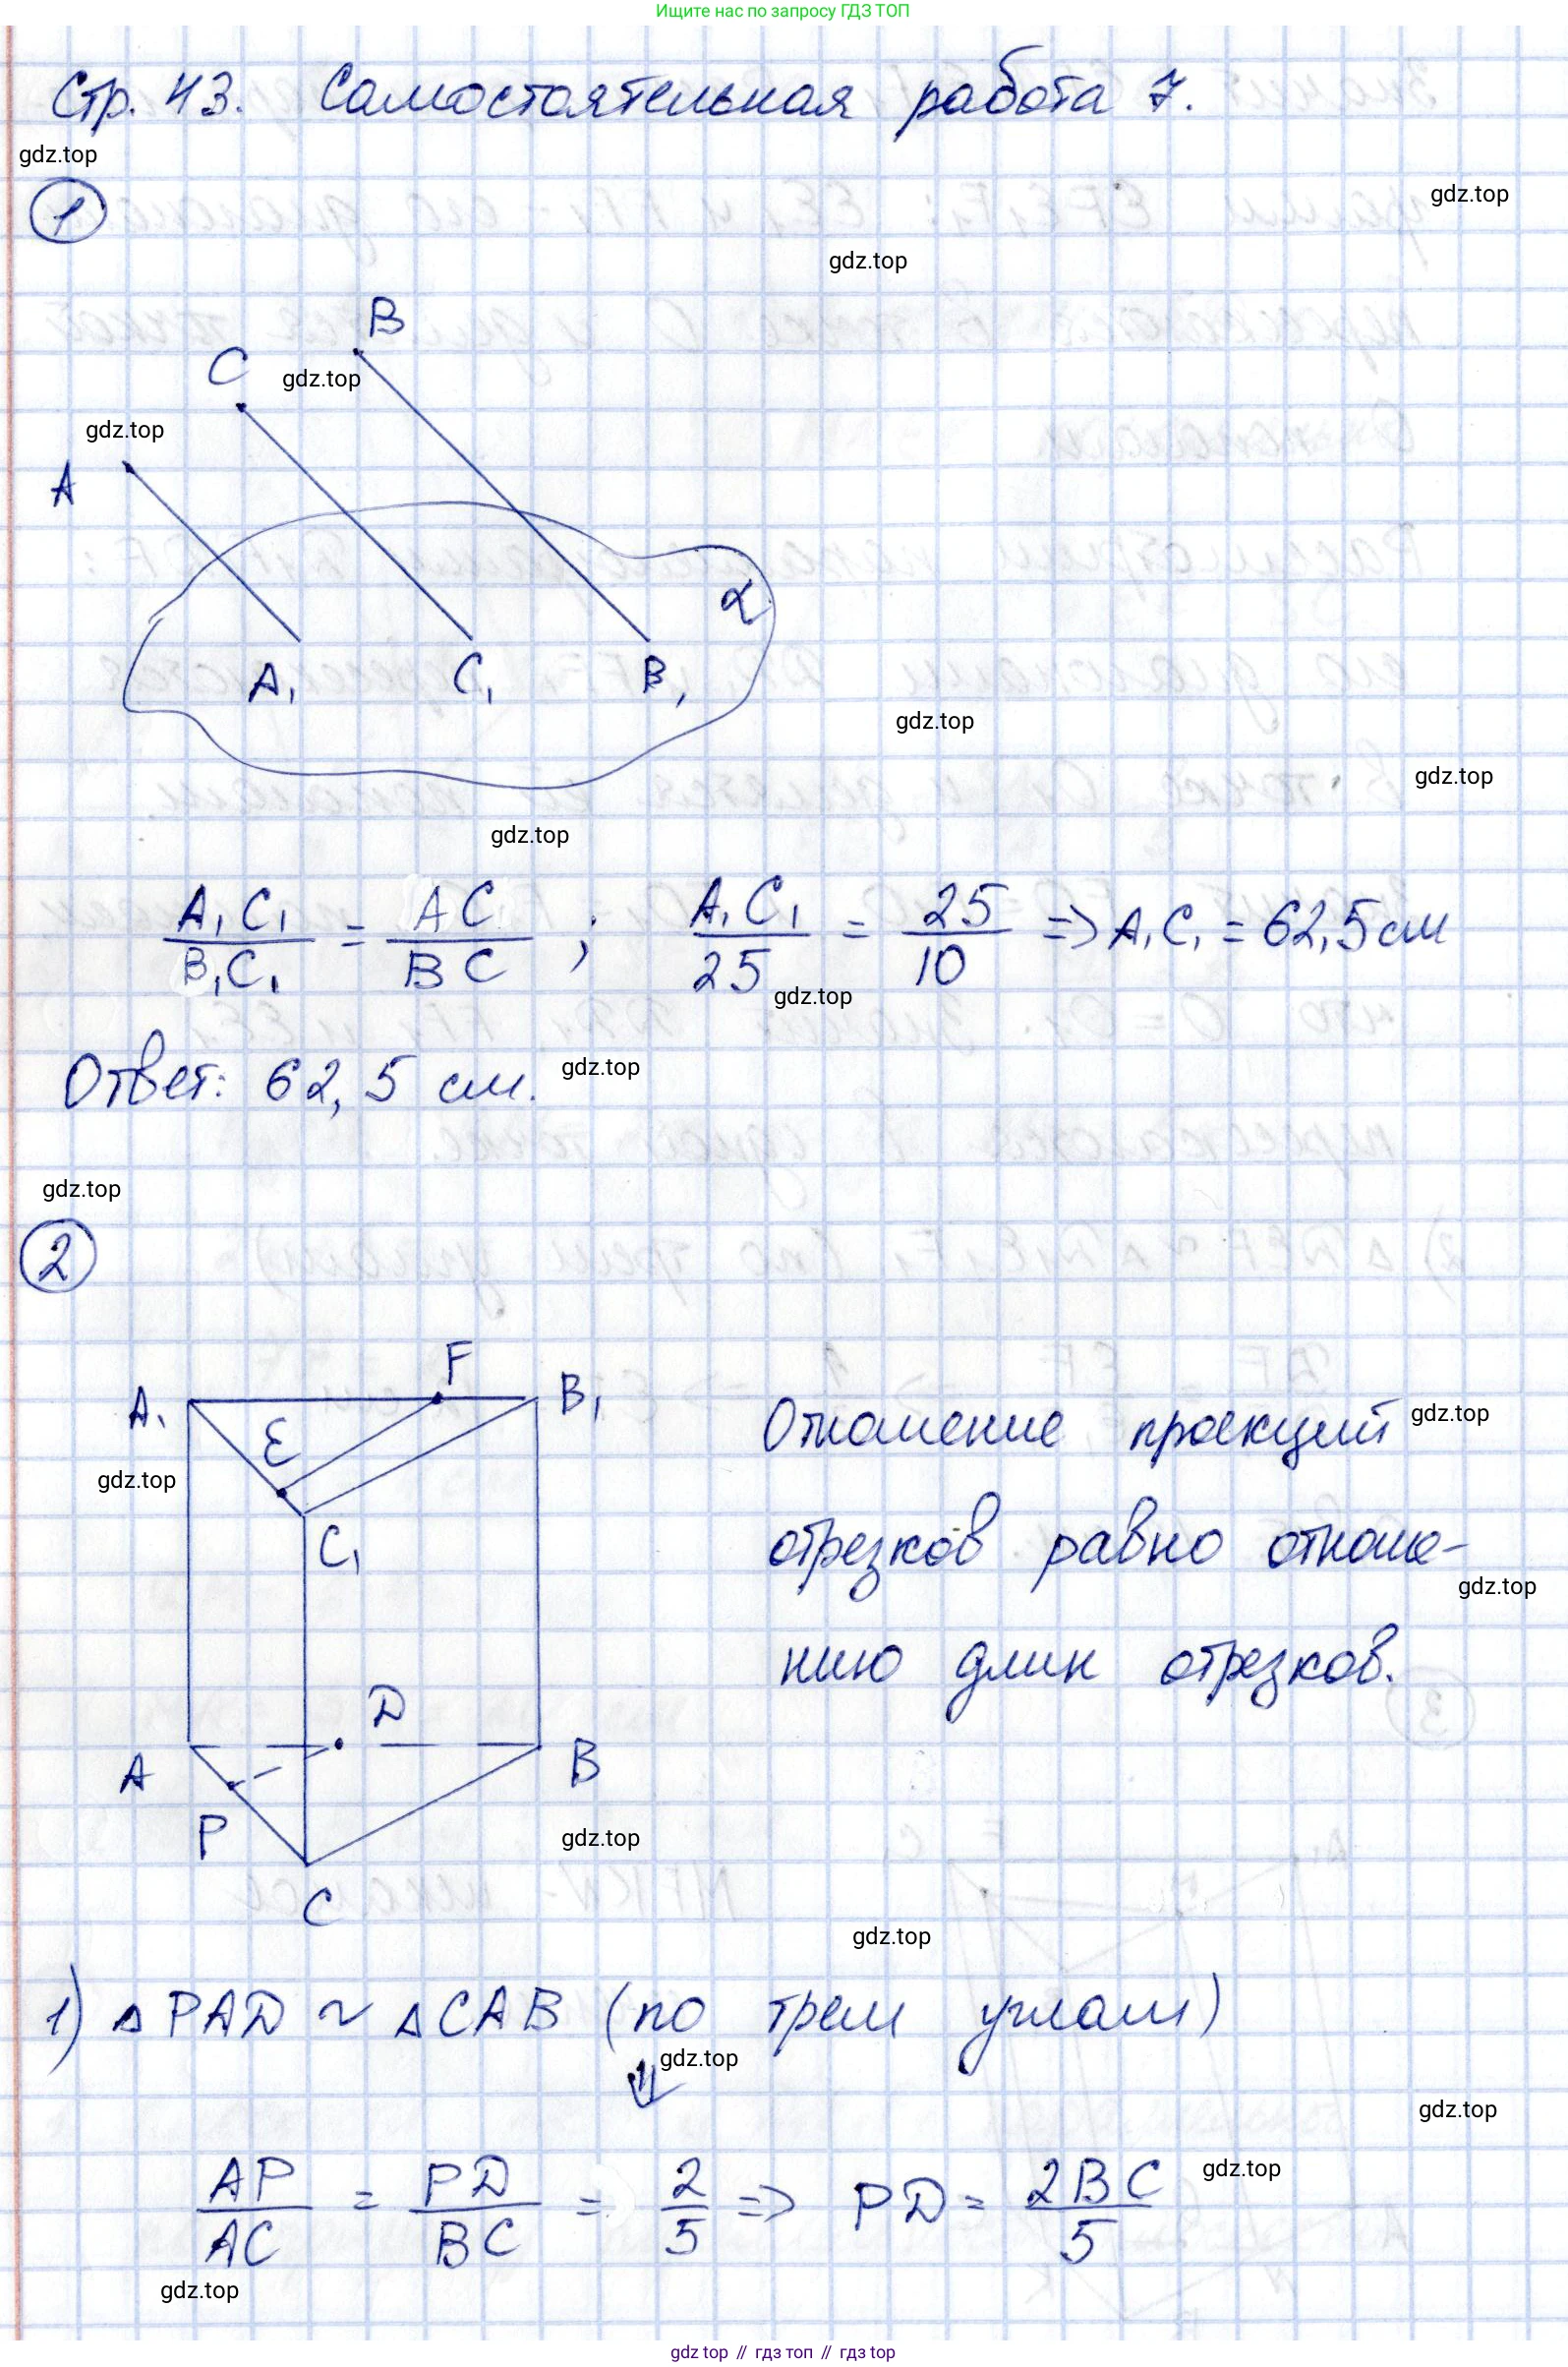 Ищите нас по запросу ГДЗ ТОП
Стр. 43. Самостоятельная работа 7.
gdz.top
1
gdz.top
gdz.top
B
C
gdz.top
gdz.top
A
α
A₁ C₁ B₁
gdz.top
gdz.top
gdz.top
A₁C₁/B₁C₁ = AC/BC ; A₁C₁/25 = 25/10 => A₁C₁ = 62,5 см
gdz.top
Ответ: 62,5 см.
gdz.top
gdz.top
2
F
A₁ B₁
E
Отношение проекций
gdz.top
gdz.top
C₁
отрезков равно отноше-
gdz.top
нию длин отрезков.
D
A B
P
gdz.top
C
gdz.top
1) △PAD ~ △CAB (по трем углам)
⇓
gdz.top
gdz.top
AP/AC = PD/BC = 2/5 => PD = 2BC/5
gdz.top
gdz.top
gdz top // гдз топ // гдз top